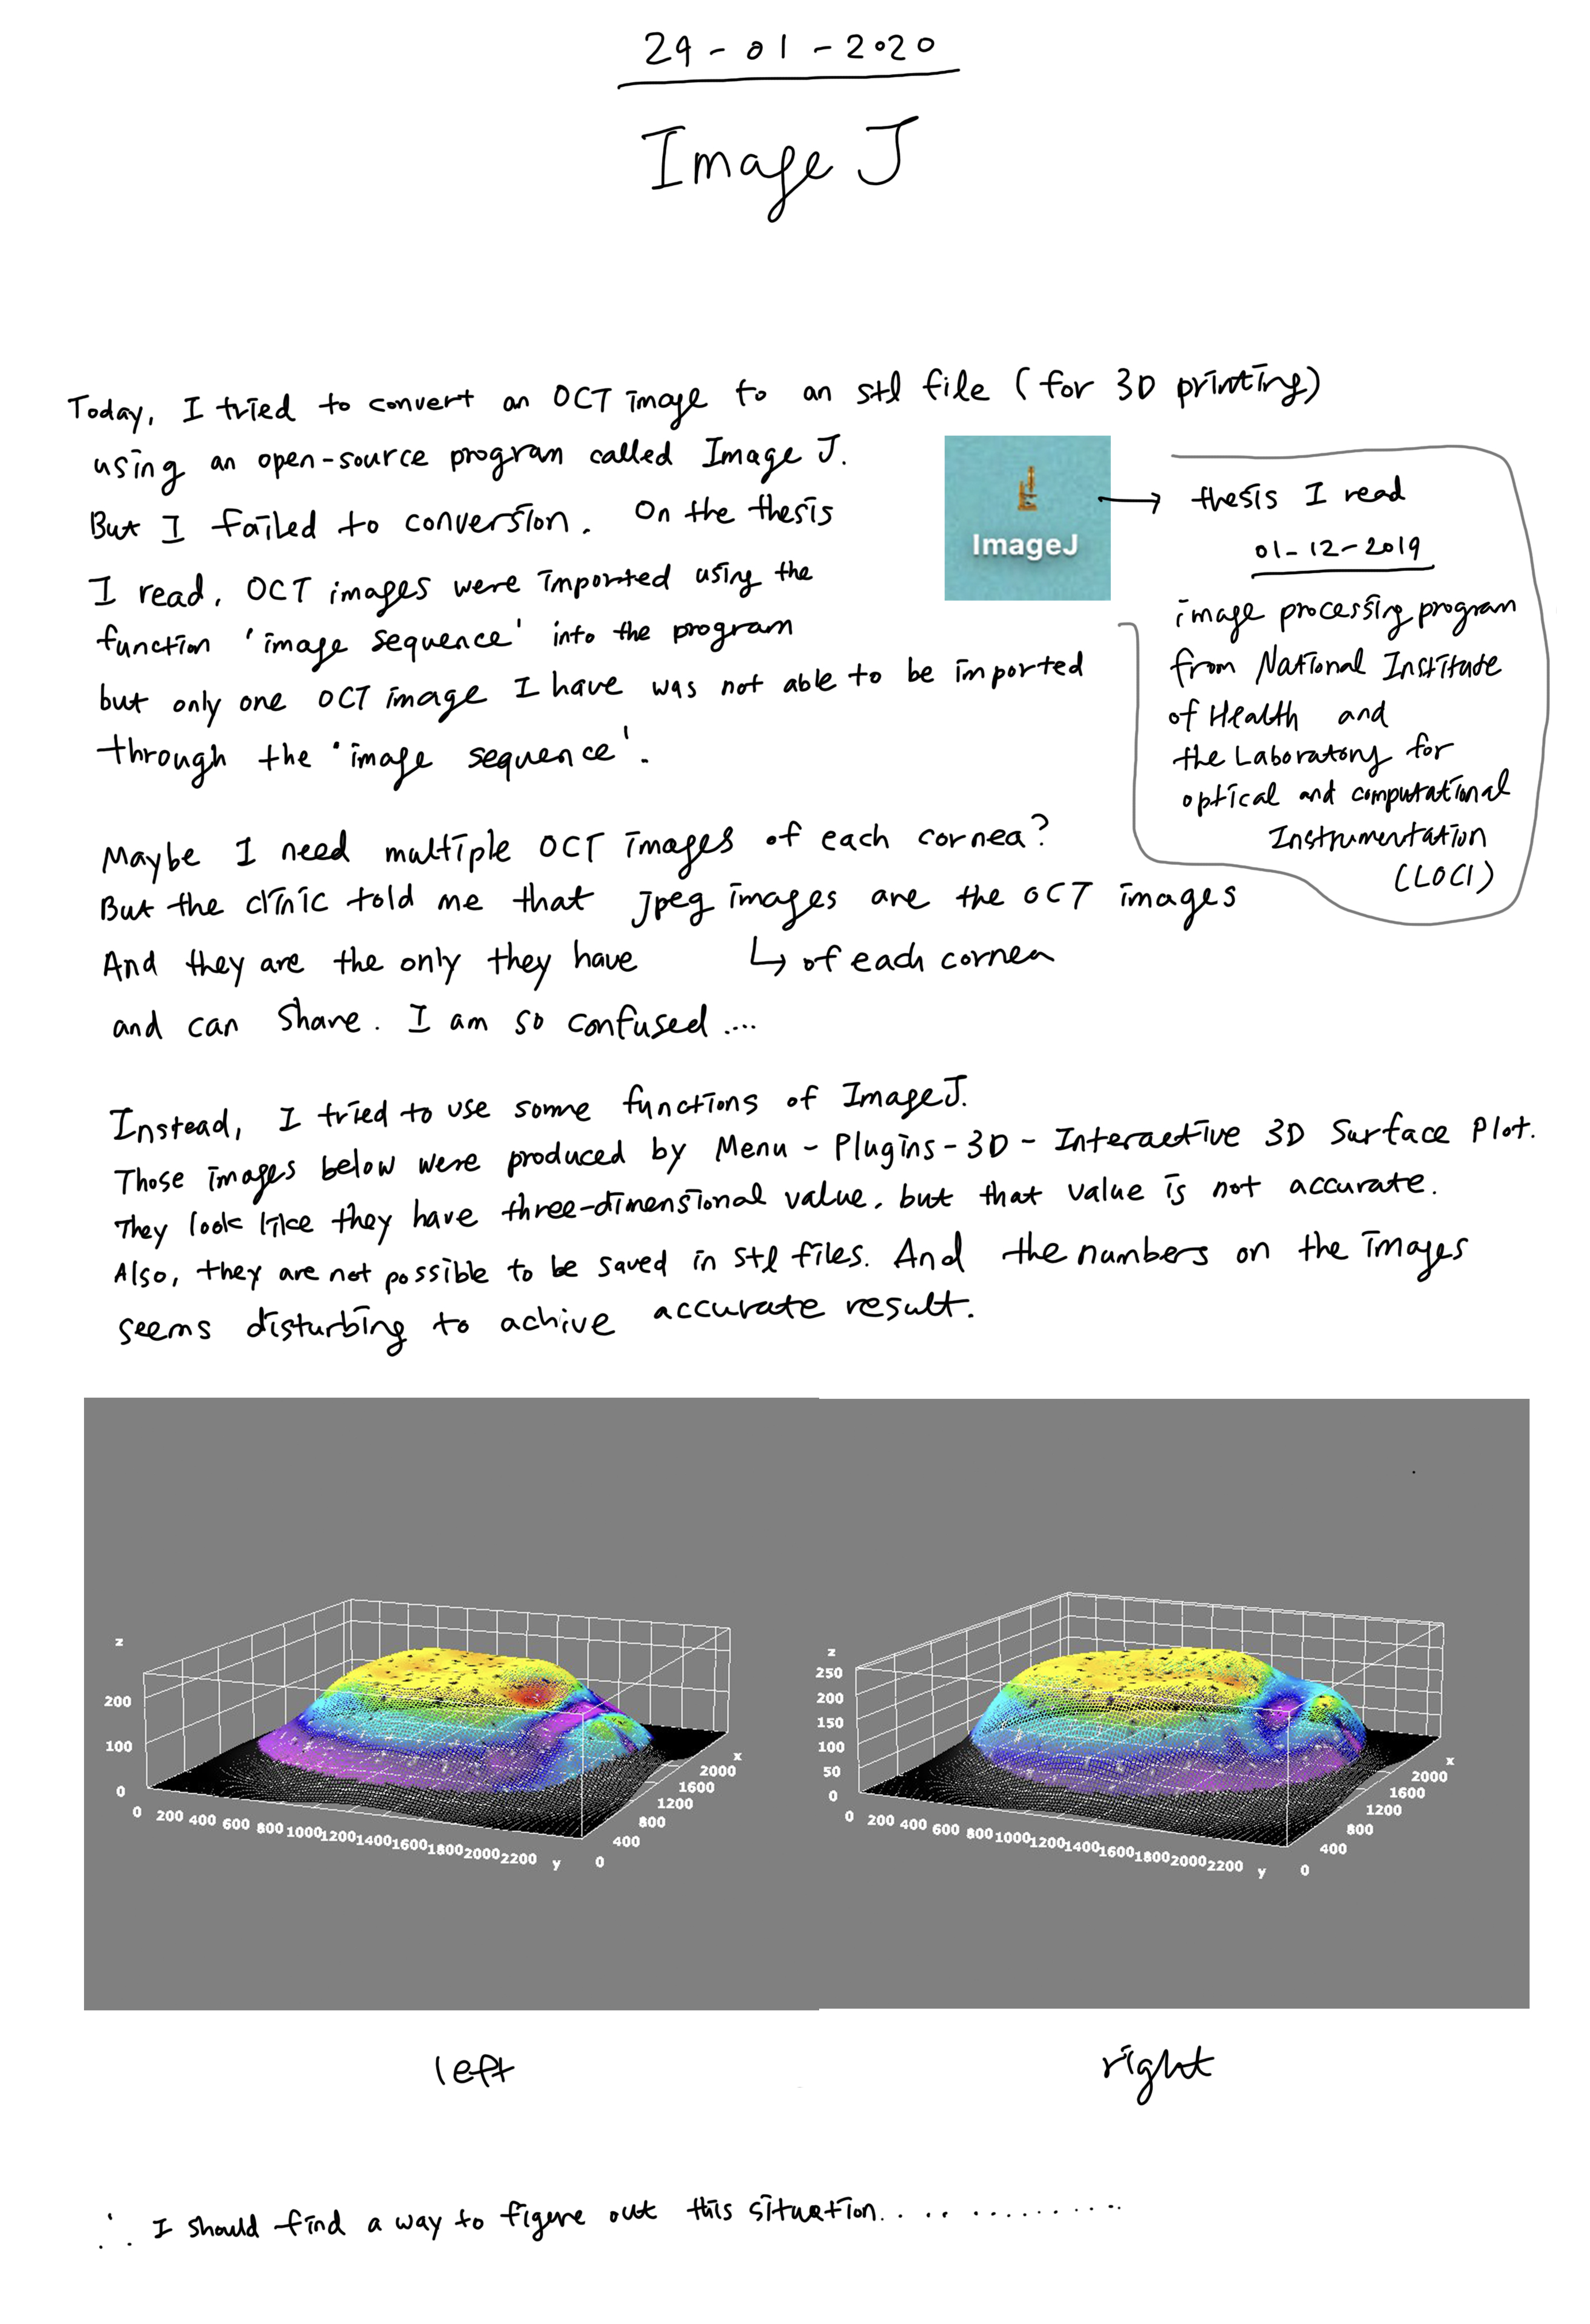 29-01-2020
Image J
Today, I tried to convert an OCT image to an stl file (for 3D printing)
using an open-source program called Image J.
But I failed to conversion. On the thesis
I read, OCT images were imported using the
function 'image sequence' into the program
but only one OCT image I have was not able to be imported
through the 'image sequence'.
ImageJ
→ thesis I read
01-12-2019
image processing program
from National Institute
of Health and
the Laboratory for
optical and computational
Instrumentation
(LOCI)
Maybe I need multiple OCT images of each cornea?
But the clinic told me that jpeg images are the OCT images
↳ of each cornea
And they are the only they have
and can share. I am so confused....
Instead, I tried to use some functions of ImageJ.
Those images below were produced by Menu - Plugins - 3D - Interactive 3D Surface Plot.
They look like they have three-dimensional value, but that value is not accurate.
Also, they are not possible to be saved in stl files. And the numbers on the images
seems disturbing to achive accurate result.
z
200
100
0
0 200 400 600 800 1000 1200 1400 1600 1800 2000 2200 y
0
400
800
1200
1600
2000
x
z
250
200
150
100
50
0
0 200 400 600 800 1000 1200 1400 1600 1800 2000 2200 y
0
400
800
1200
1600
2000
x
left
right
∴ I should find a way to figure out this situation..............